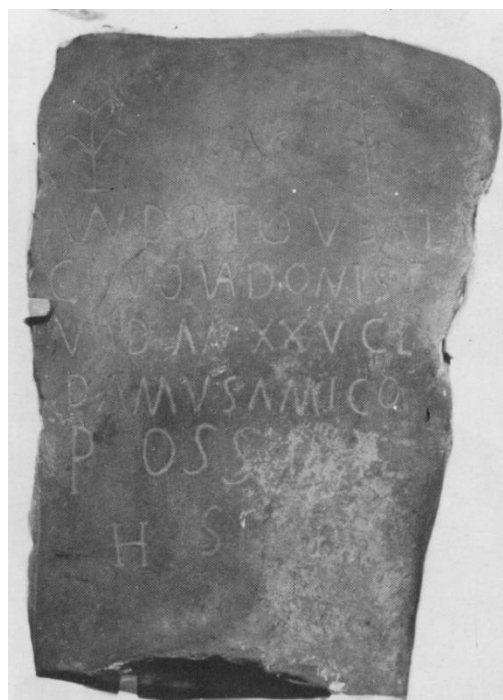 ANDOTO VBALA
VADONIS
VAD AN XXV CL
DAMVS AMICO
POSSI
H S